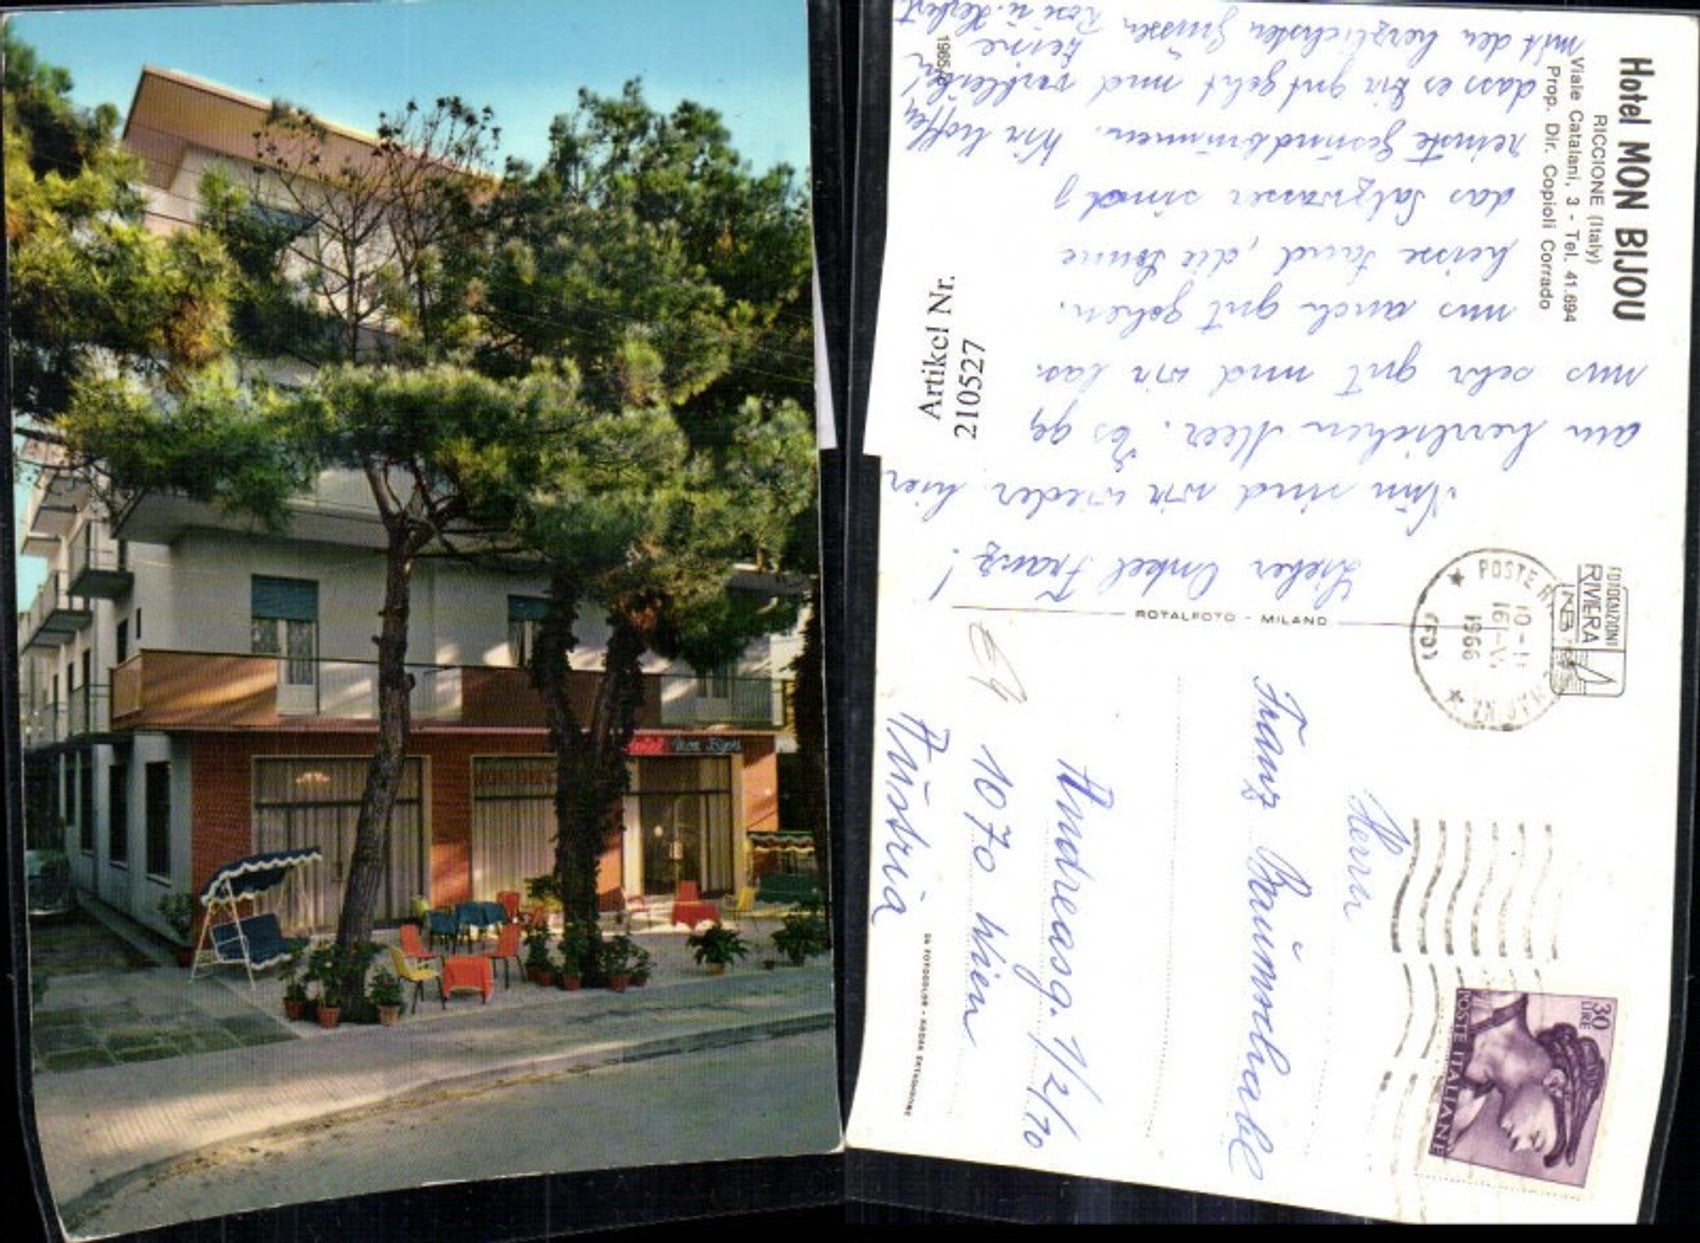 Hotel Mon Bijou
Hotel MON BIJOU
RICCIONE (Italy)
Viale Catalani, 3 - Tel. 41.694
Prop. Dir. Copioli Corrado
Artikel Nr.
210527
Lieber Onkel Franz!
Nun sind wir wieder hier
am herrlichen Meer. Es geht
uns sehr gut und wir las.
uns auch gut gehen.
heisse Sand, die Sonne
das Salzwasser sind
reinste Gesundbrunnen. Wir hoffen
dass es Dir gut geht und verbleiben
mit den herzlichsten Grüssen Deine
Rosi u. Herbert
ROTALFOTO - MILANO
POSTE
10-11
16-V
1966
(FO)
RIVIERA
30
LIRE
POSTE ITALIANE
Herrn
Franz Baumschabl
Andreasg. 1/2/70
1070 Wien
Austria